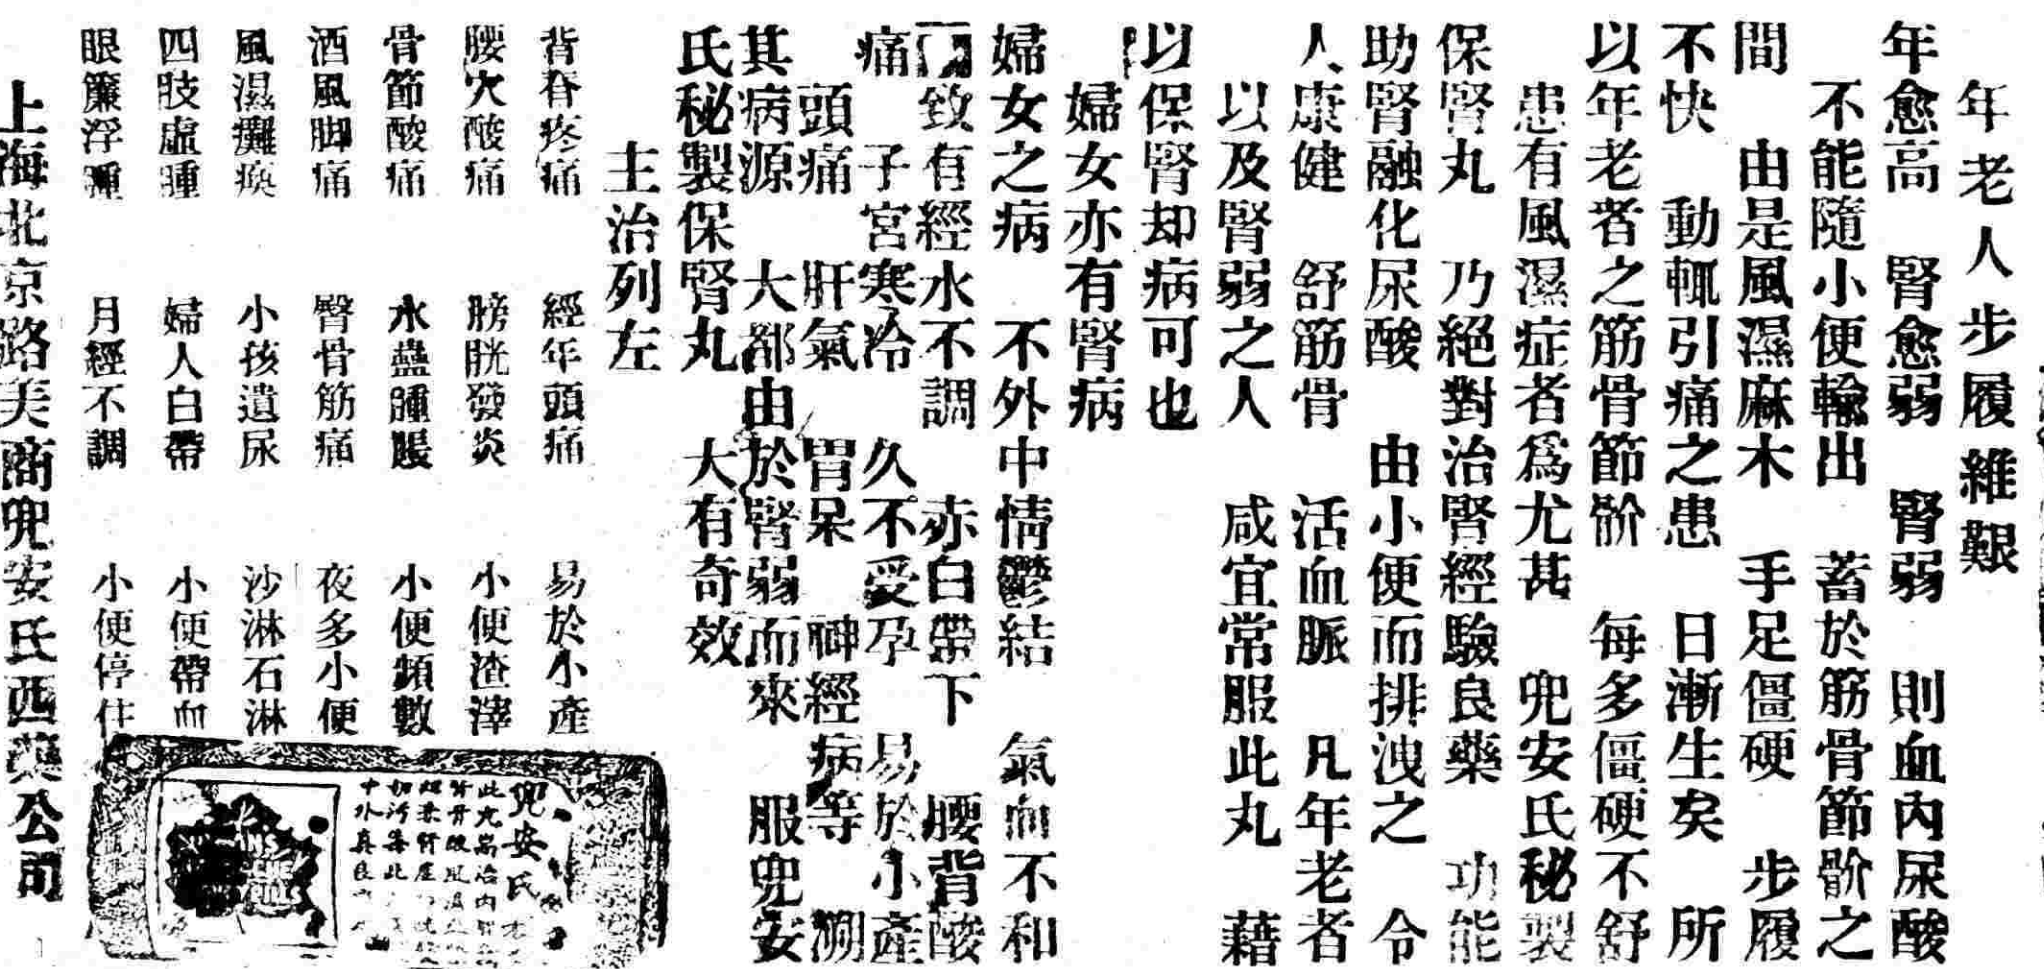 年老人步履維艱
年愈高 腎愈弱 腎弱 則血內尿酸
不能隨小便輸出 蓄於筋骨節骱之
間 由是風濕麻木 手足僵硬 步履
不快 動輒引痛之患 日漸生矣 所
以年老者之筋骨節骱 每多僵硬不舒
患有風濕症者爲尤甚 兜安氏秘製
保腎丸 乃絕對治腎經驗良藥 功能
助腎融化尿酸 由小便而排洩之 令
人康健 舒筋骨 活血脈 凡年老者
以及腎弱之人 咸宜常服此丸 藉
以保腎却病可也
婦女亦有腎病
婦女之病 不外中情鬱結 氣血不和
致有經水不調 赤白帶下 腰背酸
痛 子宮寒冷 久不受孕 易於小產
頭痛 肝氣 胃呆 神經病等 溯
其病源 大都由於腎弱而來 服兜安
氏秘製保腎丸 大有奇效
主治列左
背脊疼痛 經年頭痛 易於小產
腰穴酸痛 膀胱發炎 小便渣滓
骨節酸痛 水蠱腫脹 小便頻數
酒風脚痛 臀骨筋痛 夜多小便
風濕癱瘓 小孩遺尿 沙淋石淋
四肢虛腫 婦人白帶 小便帶血
眼簾浮腫 月經不調 小便停住
上海北京路美商兜安氏西藥公司
兜安氏